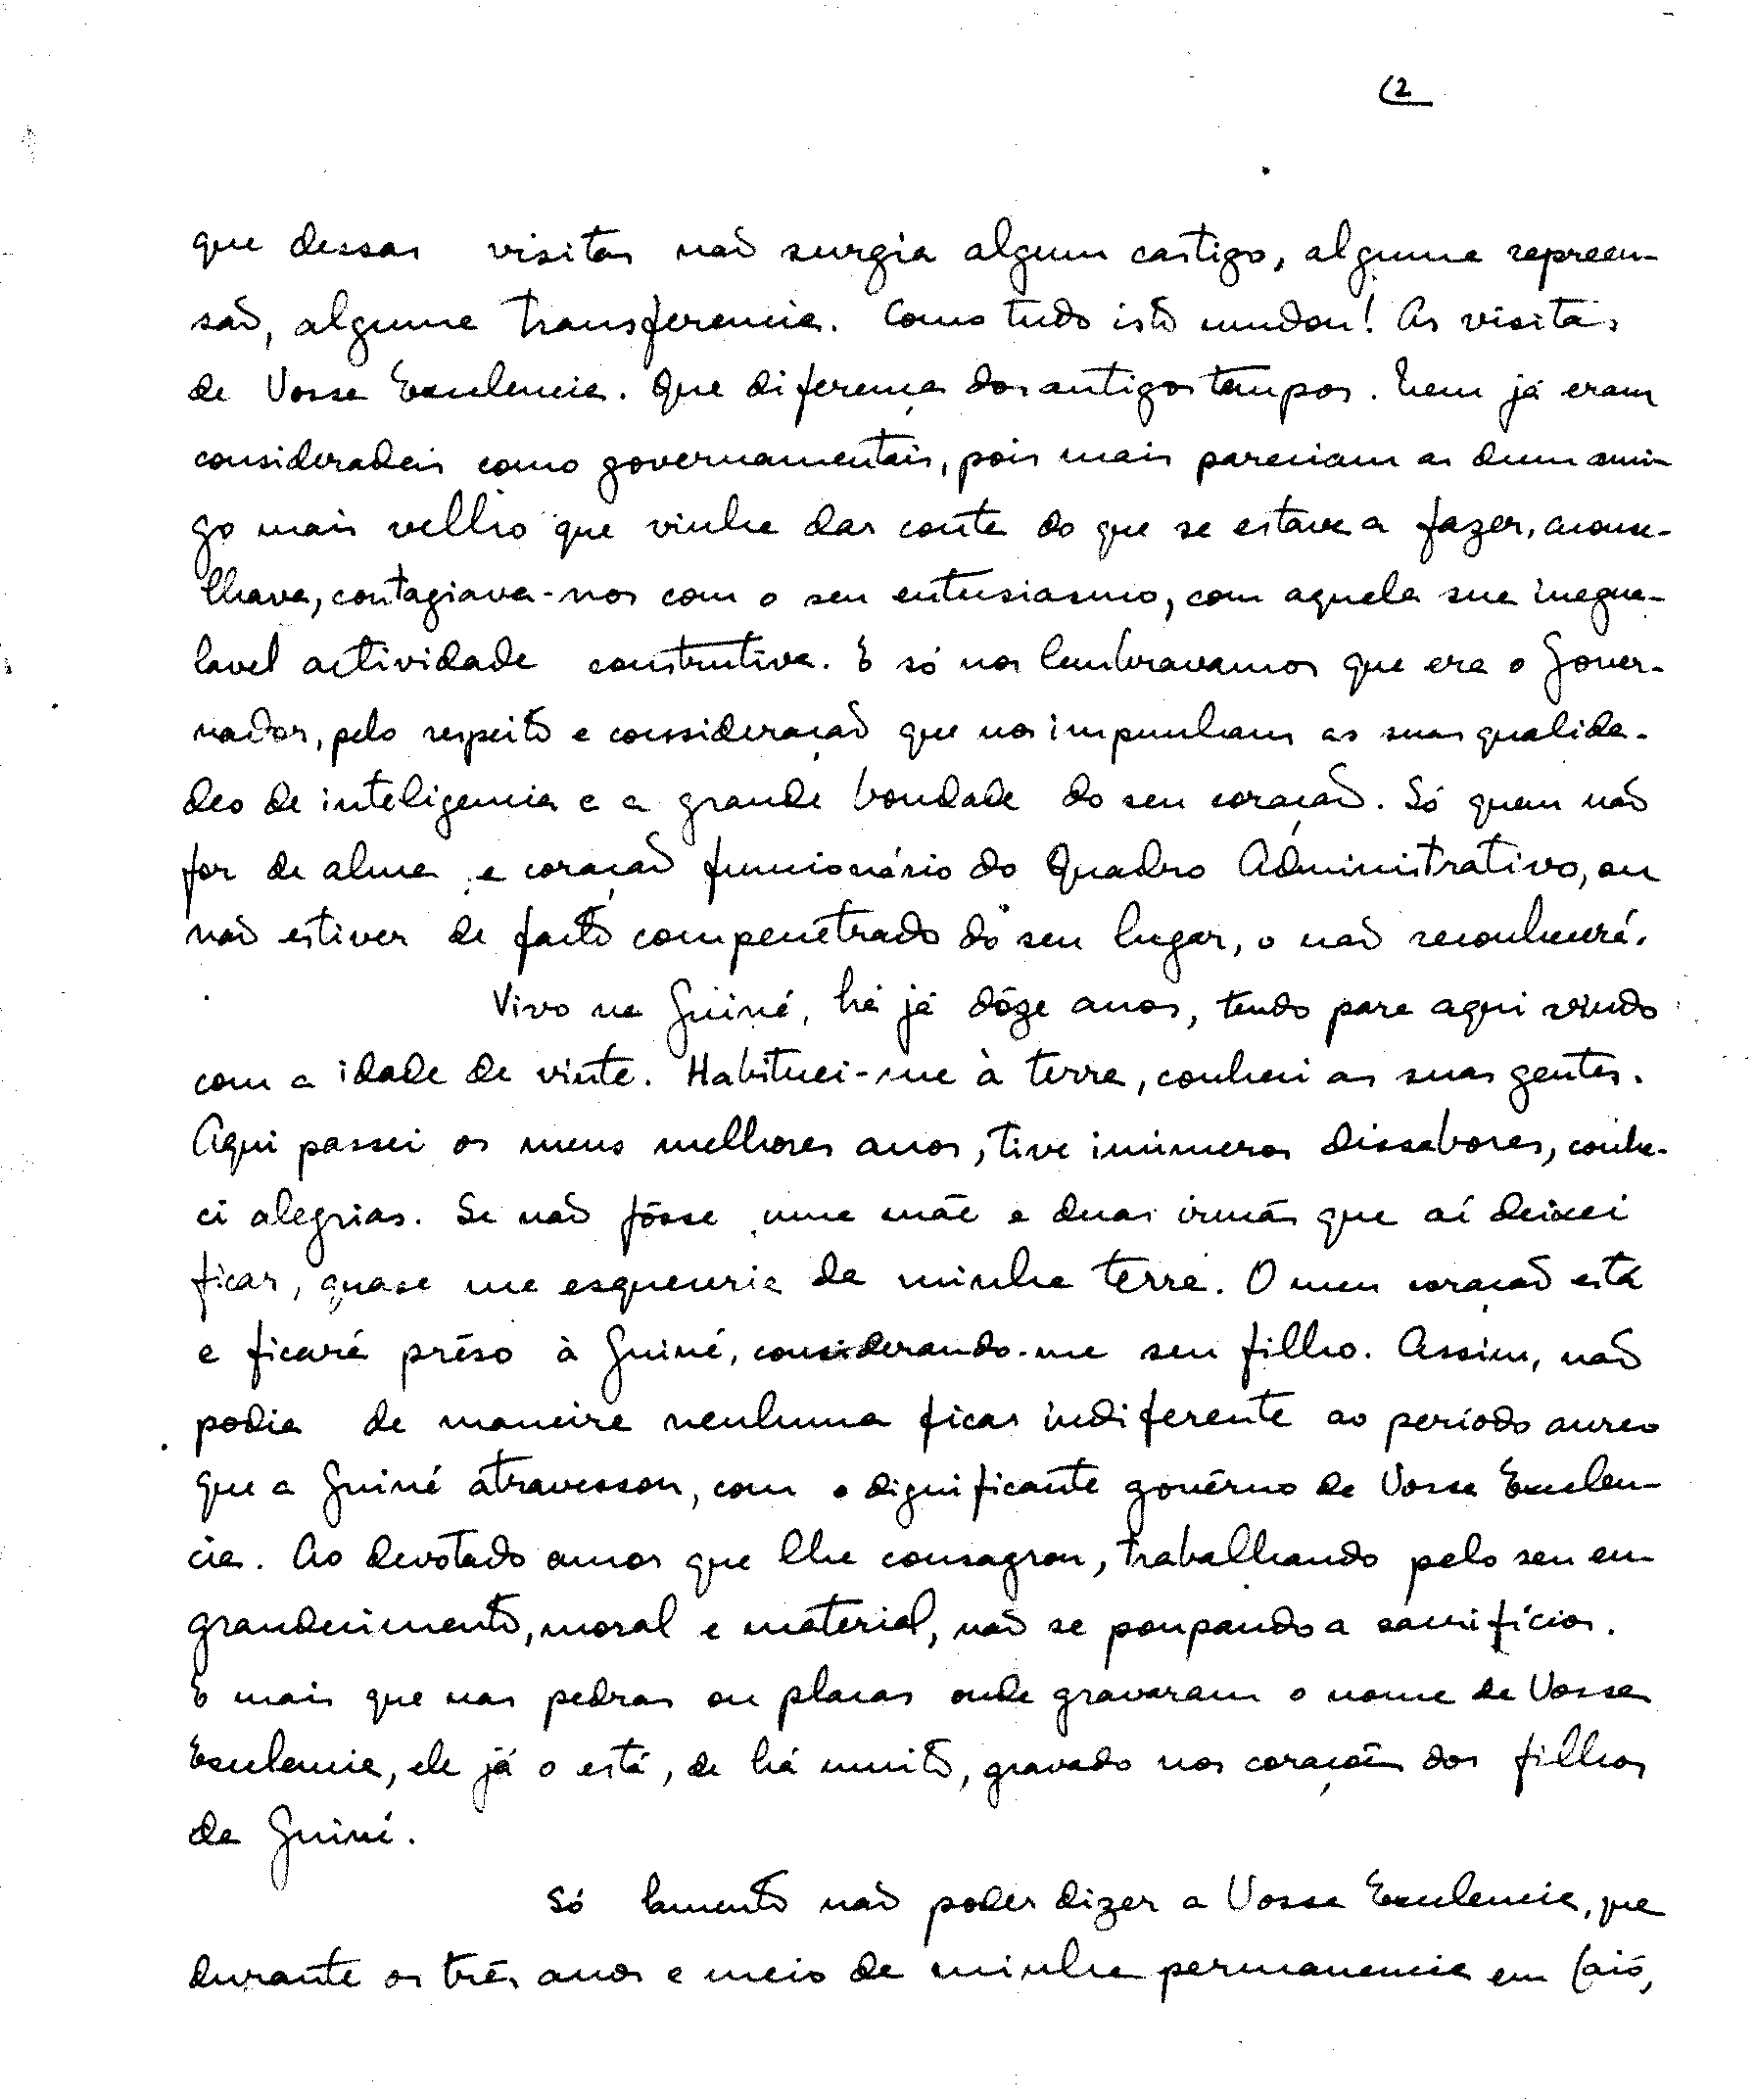 (2
que dessas visitas não surgia algum castigo, alguma repreen-
são, alguma transferencia. Como tudo isto mudou! As visitas
de Vossa Excelencia. Que diferença dos antigos tempos. Nem já eram
consideradas como governamentais, pois mais pareciam as dum ami-
go mais velho que vinha dar conta do que se estava a fazer, aconse-
lhava, contagiava-nos com o seu entusiasmo, com aquela sua inegua-
lavel actividade construtiva. E só nos lembravamos que era o Gover-
nador, pelo respeito e consideração que nos impunham as suas qualida-
des de inteligencia e a grande bondade do seu coração. Só quem não
for de alma e coração funcionário do Quadro Administrativo, ou
não estiver de facto compenetrado do seu lugar, o não reconhecerá.
Vivo na Guiné, há já dôze anos, tendo para aqui vindo
com a idade de vinte. Habituei-me à terra, conheci as suas gentes.
Aqui passei os meus melhores anos, tive inúmeros dissabores, conhe-
ci alegrias. Se não fôsse uma mãe e duas irmãs que aí deixei
ficar, quase me esqueceria da minha terra. O meu coração está
e ficará prêso à Guiné, considerando-me seu filho. Assim, não
podia de maneira nenhuma ficar indiferente ao período aureo
que a Guiné atravessou, com o dignificante govêrno de Vossa Excelen-
cia. Ao devotado amor que lhe consagrou, trabalhando pelo seu en-
grandecimento, moral e material, não se poupando a sacrifícios.
E mais que nas pedras ou placas onde gravaram o nome de Vossa
Excelencia, ele já o está, de há muito, gravado nos corações dos filhos
da Guiné.
Só lamento não poder dizer a Vossa Excelencia, que
durante os três anos e meio de minha permanencia em Caió,